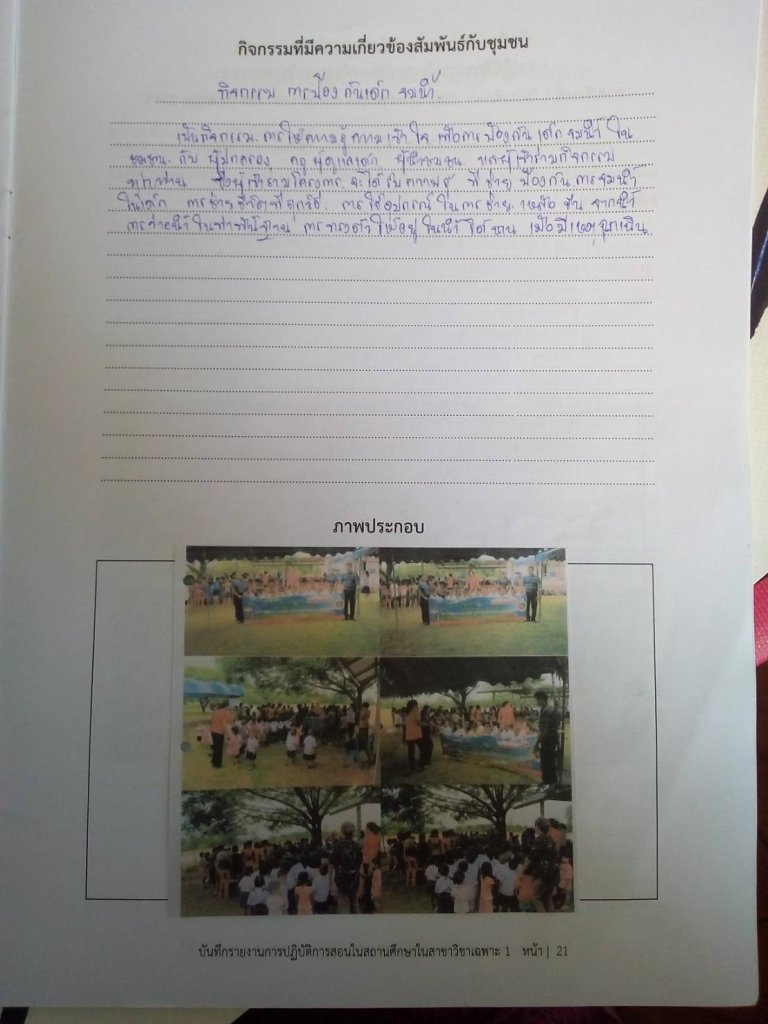 กิจกรรมที่มีความเกี่ยวข้องสัมพันธ์กับชุมชน
กิจกรรม การป้องกันเด็กจมน้ำ
เป็นกิจกรรม การให้ความรู้ความเข้าใจ เพื่อการป้องกันเด็กจมน้ำ ใน
ชุมชน กับ ผู้ปกครอง ครูผู้ดูแลเด็ก ผู้นำชุมชน และผู้เข้าร่วมกิจกรรม
ทุกท่าน ซึ่งผู้เข้าร่วมโครงการ จะได้รับความรู้ ที่ช่วยป้องกันการจมน้ำ
ในเด็ก การช่วยชีวิตที่ถูกวิธี การใช้อุปกรณ์ในการช่วยเหลือ ขึ้นจากน้ำ
การว่ายน้ำในท่าพื้นฐาน การทรงตัวเมื่ออยู่ในน้ำได้นาน เมื่อมีเหตุฉุกเฉิน
ภาพประกอบ
บันทึกรายงานการปฏิบัติการสอนในสถานศึกษาในสาขาวิชาเฉพาะ 1 หน้า | 21